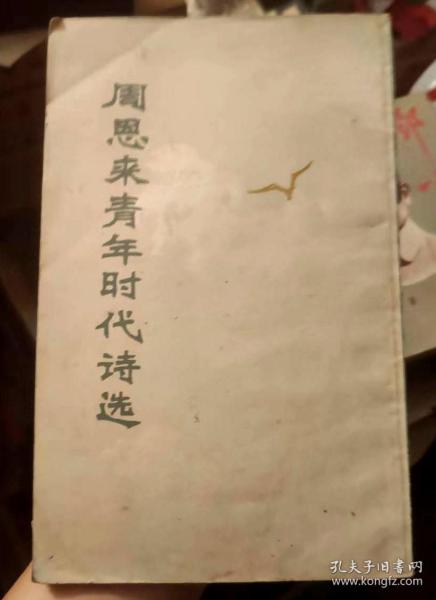 周恩来青年时代诗选
孔夫子旧书网
www.kongfz.com